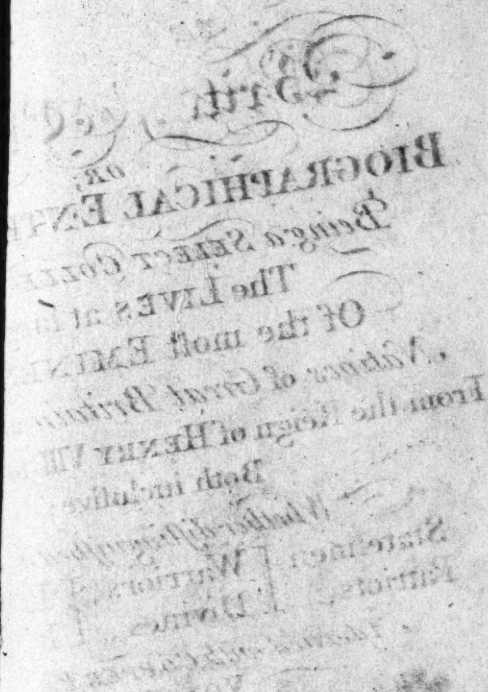 Brit
OR,
BIOGRAPHICAL ENT
Being a SELECT COLLE
The LIVES at la
Of the moſt EMINEN
Natives of Great Britain
From the Reign of HENRY VIII.
Both incluſive;
Whether diſtinguiſhed
Stateſmen Warriors,
Patriots, Divines,